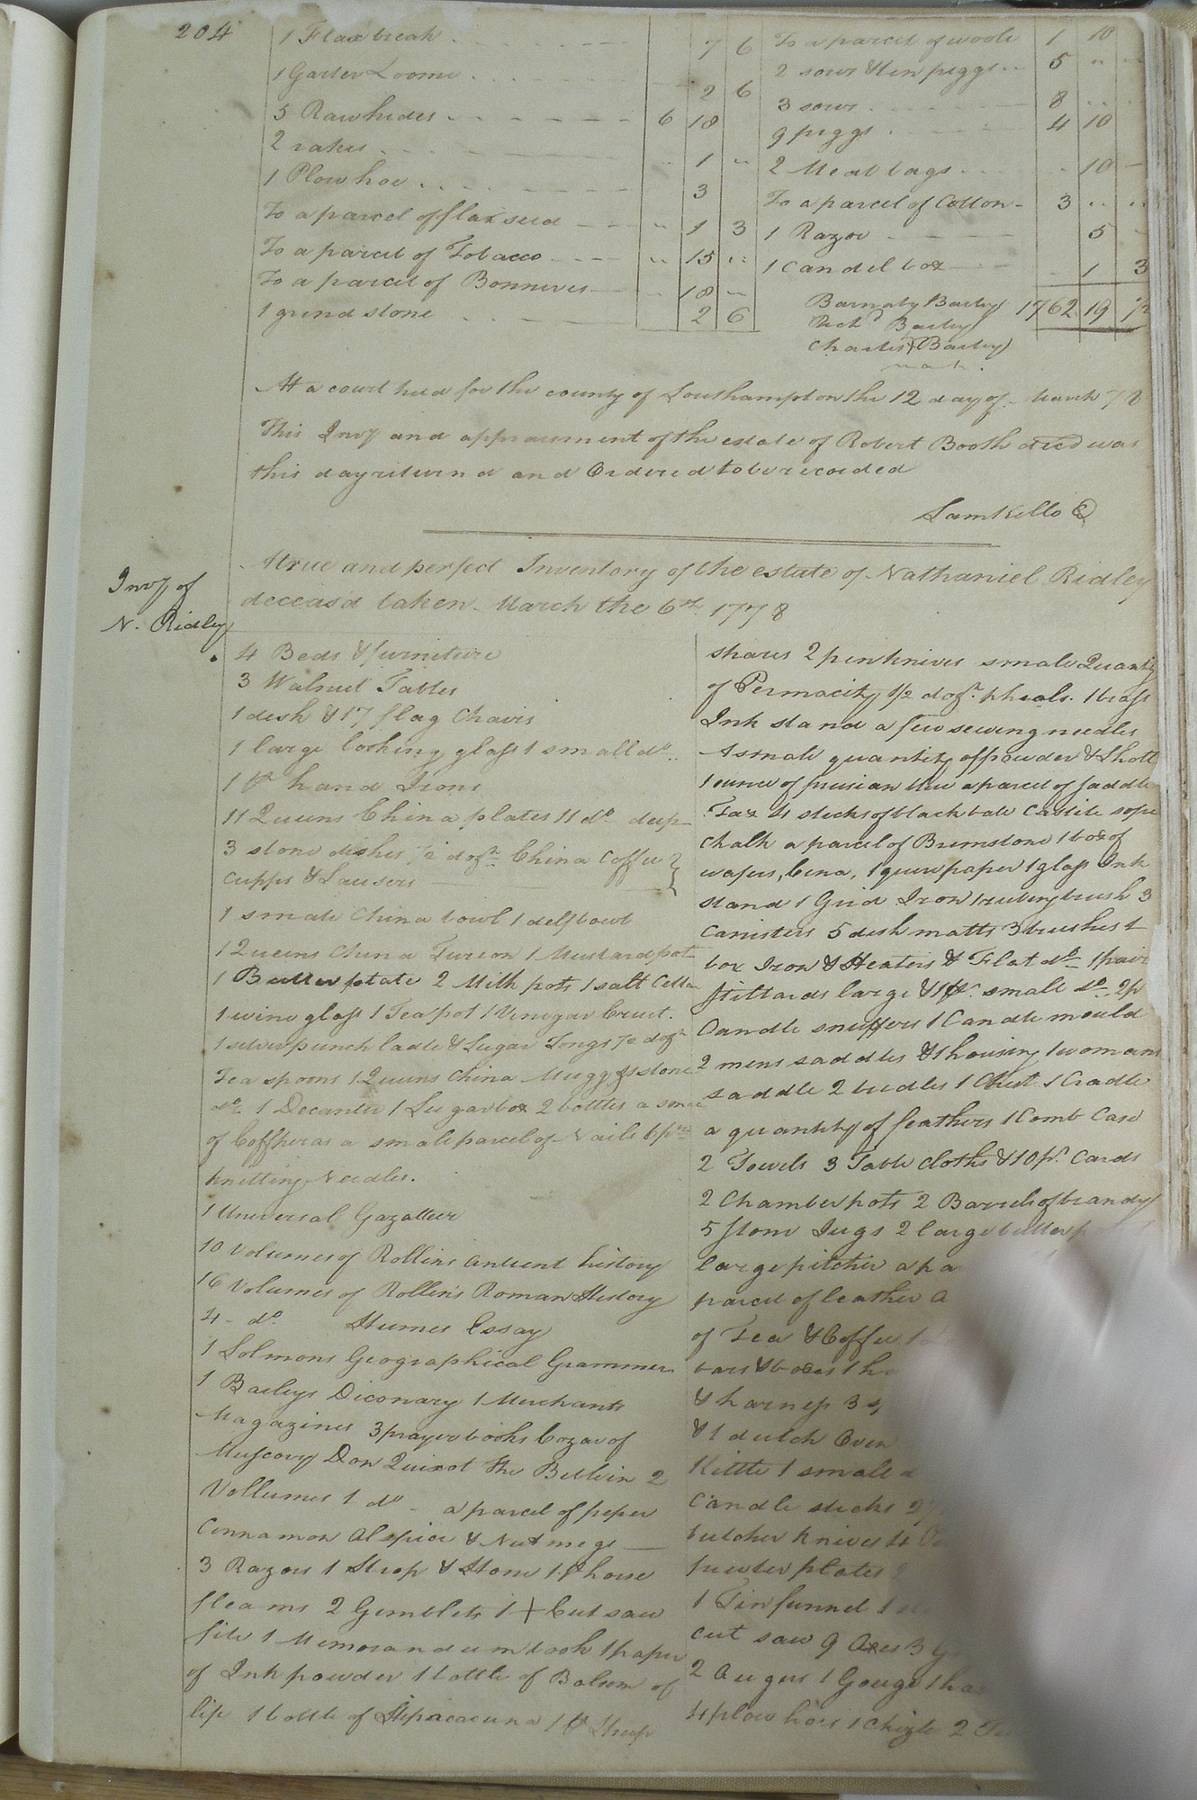 204
1 Flax break 7 6
1 Garter Loome 2 6
5 Raw hides 6 18
2 rakes 1 "
1 Plow hoe 3
To a parcel of flax seed " 1 3
To a parcel of Tobacco " 15 "
To a parcel of Bonnives " 18 "
1 grind stone 2 6
To a parcel of woole 1 10
2 sows & ten piggs 5 " "
3 sows 8 " "
9 piggs 4 10
2 Meal bags " 10
To a parcel of Cotton 3 " "
1 Razor 5
1 Candel box 1 3
Barnaby Bailey 1762 19 1/2
Richd Bailey
Charles + Bailey
mark
At a court held for the county of Southampton the 12 day of March 78
This Invy and appraisment of the estate of Robert Booth decd was
this day returnd and Ordered to be recorded
Sam Kello C
Invy of
N. Ridley
A true and perfect Inventory of the estate of Nathaniel Ridley
deceasd taken March the 6th 1778
4 Beds & furniture
3 Walnut Tables
1 desk & 17 flag Chairs
1 large looking glass 1 small do
1 pr hand Irons
11 Queens China plates 11 do deep
3 stone dishes 1/2 dozn China Coffee
cupps & Sausers
1 smale China bowl 1 delf bowl
1 Queens China Tureon 1 Mustard pot
1 Butter plate 2 Milk pots 1 salt Celler
1 wine glass 1 Teapot 1 Vinegar Cruet
1 silver punch ladle & Sugar Tongs 1/2 dozn
Tea spoons 1 Queens China Mugg & 1 stone
do 1 Decanter 1 Sugar box 2 bottles a
of Cofferas a smale parcel of Nails 6 prs
knitting Needles.
1 Universal Gazatteer
10 Volumes of Rollins antient history
16 Volumes of Rollins Roman History
4 do Humes Essay
1 Solmons Geographical Grammer
1 Baileys Diconary 1 Merchants
Magazines 3 prayer books Cozar of
Muscovy Don Quixot the 2
Vollumes 1 do a parcel of peper
Cinnamon Alspice & Nutmegs
3 Razors 1 Strop & Stone 1 pr horse
fleams 2 Gemblets 1 + Cut saw
file 1 Memorandum book 1 paper
of Ink powder 1 bottle of Balsom of
life 1 bottle of Hipacacuna 1 pr Sheep
shares 2 penknives smale Quantity
of Permacity 1/2 dozn pheals 1 brass
Ink stand a few sewing needles
A smale quantity of powder & Shott
1 ounce of prusian blue a parcel of
4 sticks of black ball Castile sope
Chalk a parcel of Brimstone 1 box of
wafers, 1 quire paper 1 glass Ink
stand 1 Grid Iron brush 3
Canisters 5 dish matts 3 brushes 1
box Iron & Heaters & Flat do 1 pair
stilliards large & 1 pr small do 2 p
Candle snuffers 1 Candle mould
2 mens saddles & 1 housing 1 womans
saddle 2 bridles 1 Chest 1 Cradle
a quantity of feathers 1 Comb Case
2 Towels 3 Table cloths & 10 pr Cards
2 Chamber pots 2 Barrels of brandy
5 stone Jugs 2 large butter p
large pitcher a pa
parcel of leather a
of Tea & Coffee 1
& boxes 1
& harness 3
& 1 dutch Oven
Kittle 1 small
Candle sticks 2
butcher knives 4
puewter plates
1 Tin funnel 1
cut saw 9 axes 3
2 Augurs 1 Gouge 1 ha
4 plow hoes 1 Chizle 2